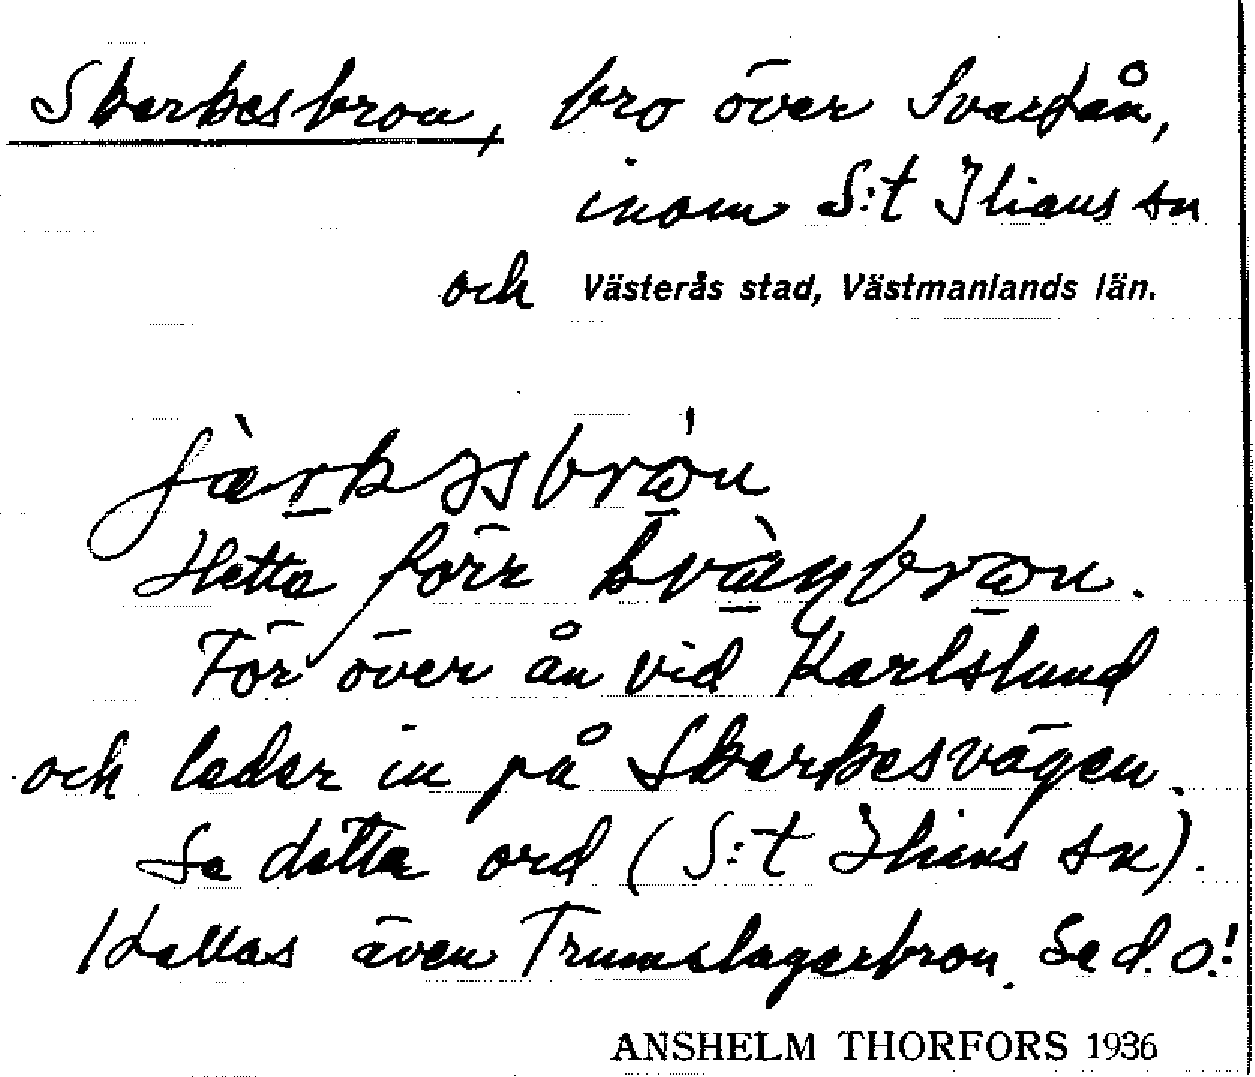 Skerkesbron, bro över Svartån,
inom S:t Ilians sn
och Västerås stad, Västmanlands län.
Hette förr kvànbron.
För över ån vid Karlslund
och leder in på Skerkesvägen.
Se detta ord (S:t Ilians sn).
Kallas även Trumslagarbron. Se d.o.!
ANSHELM THORFORS 1936